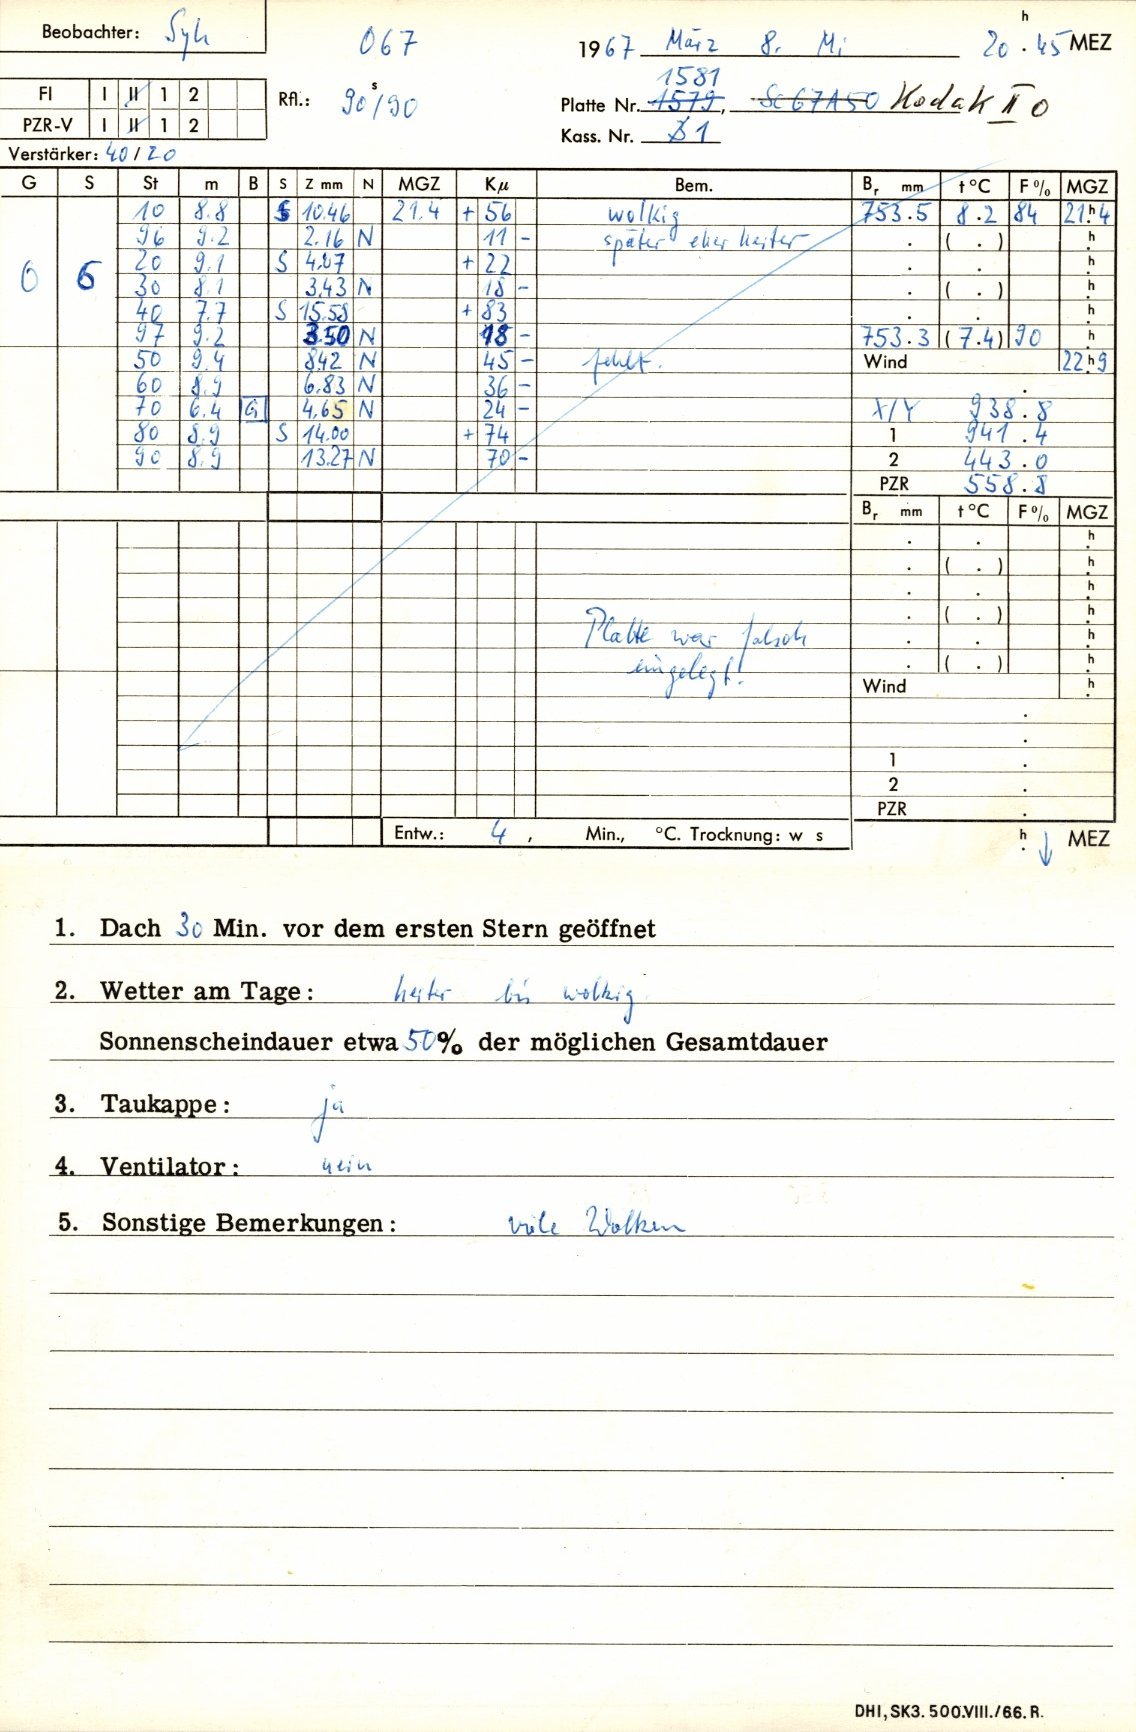 Beobachter: Syh 067 1967 März 8. Mi 20h.45 MEZ
FI I II 1 2
PZR-V I II 1 2
Rfl.: 90s/90
1581
Platte Nr. 1579, Sc67A50 Kodak II o
Kass. Nr. 81
Verstärker: 40/20
G S St m B S Z mm N MGZ Kμ Bem. Br mm t°C F% MGZ
0 6 10 8.8 S 10.46 21.4 + 56 wolkig 753.5 8.2 84 21h.4
96 9.2 2.16 N 11 - später eher heiter . ( . ) h.
20 9.1 S 4.07 + 22 . . h.
30 8.1 3.43 N 18 - . ( . ) h.
40 7.7 S 15.58 + 83 . . h.
97 9.2 3.50 N 18 - 753.3 (7.4) 90 h.
50 9.4 8.42 N 45 - fehlt. Wind 22h.9
60 8.9 6.83 N 36 - .
70 6.4 G 4.65 N 24 - X/Y 938.8
80 8.9 S 14.00 + 74 1 941.4
90 8.9 13.27 N 70 - 2 443.0
PZR 558.8
Br mm t°C F% MGZ
. . h.
. ( . ) h.
. . h.
. ( . ) h.
Platte war falsch . . h.
eingelegt! . ( . ) h.
Wind h.
.
.
1 .
2 .
PZR .
Entw.: 4 , Min., °C. Trocknung: w s h. ↓ MEZ
1. Dach 30 Min. vor dem ersten Stern geöffnet
2. Wetter am Tage: heiter bis wolkig.
Sonnenscheindauer etwa 50% der möglichen Gesamtdauer
3. Taukappe: ja
4. Ventilator: nein
5. Sonstige Bemerkungen: viele Wolken
DHI, SK3. 500.VIII./66.R.